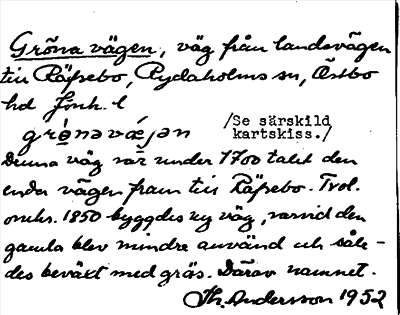 Gröna vägen, väg från landsvägen
till Räfsebo, Rydaholms sn, Östbo
hd Jönk. l
grø̀nəvæ̀jən /Se särskild
kartskiss./
Denna väg var under 1700 talet den
enda vägen fram till Räfsebo. Trol.
omkr. 1850 byggdes ny väg, varvid den
gamla blev mindre använd och såle-
des beväxt med gräs. Därav namnet.
Th. Andersson 1952